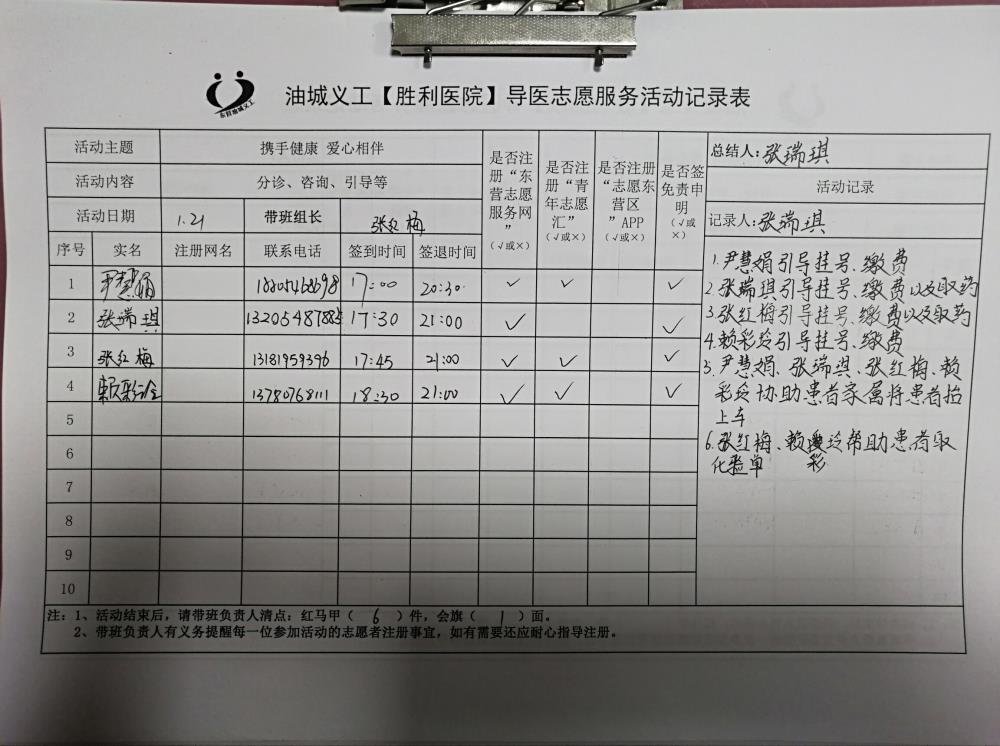 东营油城义工
油城义工【胜利医院】导医志愿服务活动记录表
活动主题 携手健康 爱心相伴
活动内容 分诊、咨询、引导等
活动日期 1.21 带班组长 张红梅
是否注册“东营志愿服务网”(√或×)
是否注册“青年志愿汇”(√或×)
是否注册“志愿东营区”APP(√或×)
是否签免责申明(√或×)
序号 实名 注册网名 联系电话 签到时间 签退时间
1 尹慧娟 17:00 20:30 ✓ ✓ ✓
2 张瑞琪 17:30 21:00 ✓ ✓
3 张红梅 13181959396 17:45 21:00 ✓ ✓ ✓
4 赖彩玲 13780768111 18:30 21:00 ✓ ✓ ✓
5
6
7
8
9
10
总结人:张瑞琪
活动记录
记录人:张瑞琪
1.尹慧娟引导挂号、缴费
2.张瑞琪引导挂号、缴费以及取药
3.张红梅引导挂号、缴费以及取药
4.赖彩玲引导挂号、缴费
5.尹慧娟、张瑞琪、张红梅、赖
彩玲协助患者家属将患者抬
上车
6.张红梅、赖彩玲帮助患者取
化验单
注:1、活动结束后,请带班负责人清点:红马甲(6)件,会旗(1)面。
2、带班负责人有义务提醒每一位参加活动的志愿者注册事宜,如有需要还应耐心指导注册。